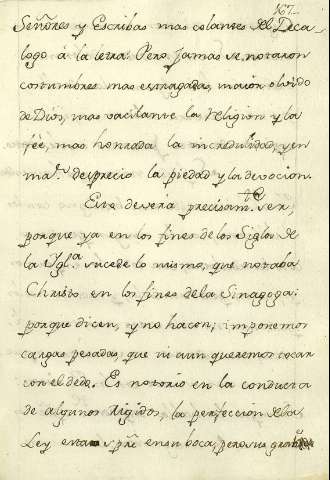 167
Señores y Escribas mas celantes del Deca-
logo á la letra. Pero jamas se notaron
costumbres mas estragadas, maior olvido
de Dios, mas vacilante la religion y la
feé, mas honrada la incredulidad, y en
mar. desprecio la piedad y la devocion.
Esto devera precisamte. ser,
porque ya en los fines de los Siglos de
la Ygla. sucede lo mismo, que notaba
Christo en los fines de la Sinagoga:
porque dicen, y no hacen; imponemos
cargas pesadas, que ni aun queremos tocar
con el dedo. Es notorio en la conducta
de algunos rigidos, la perfeccion de la
Ley esta spre. en su boca, pero sus